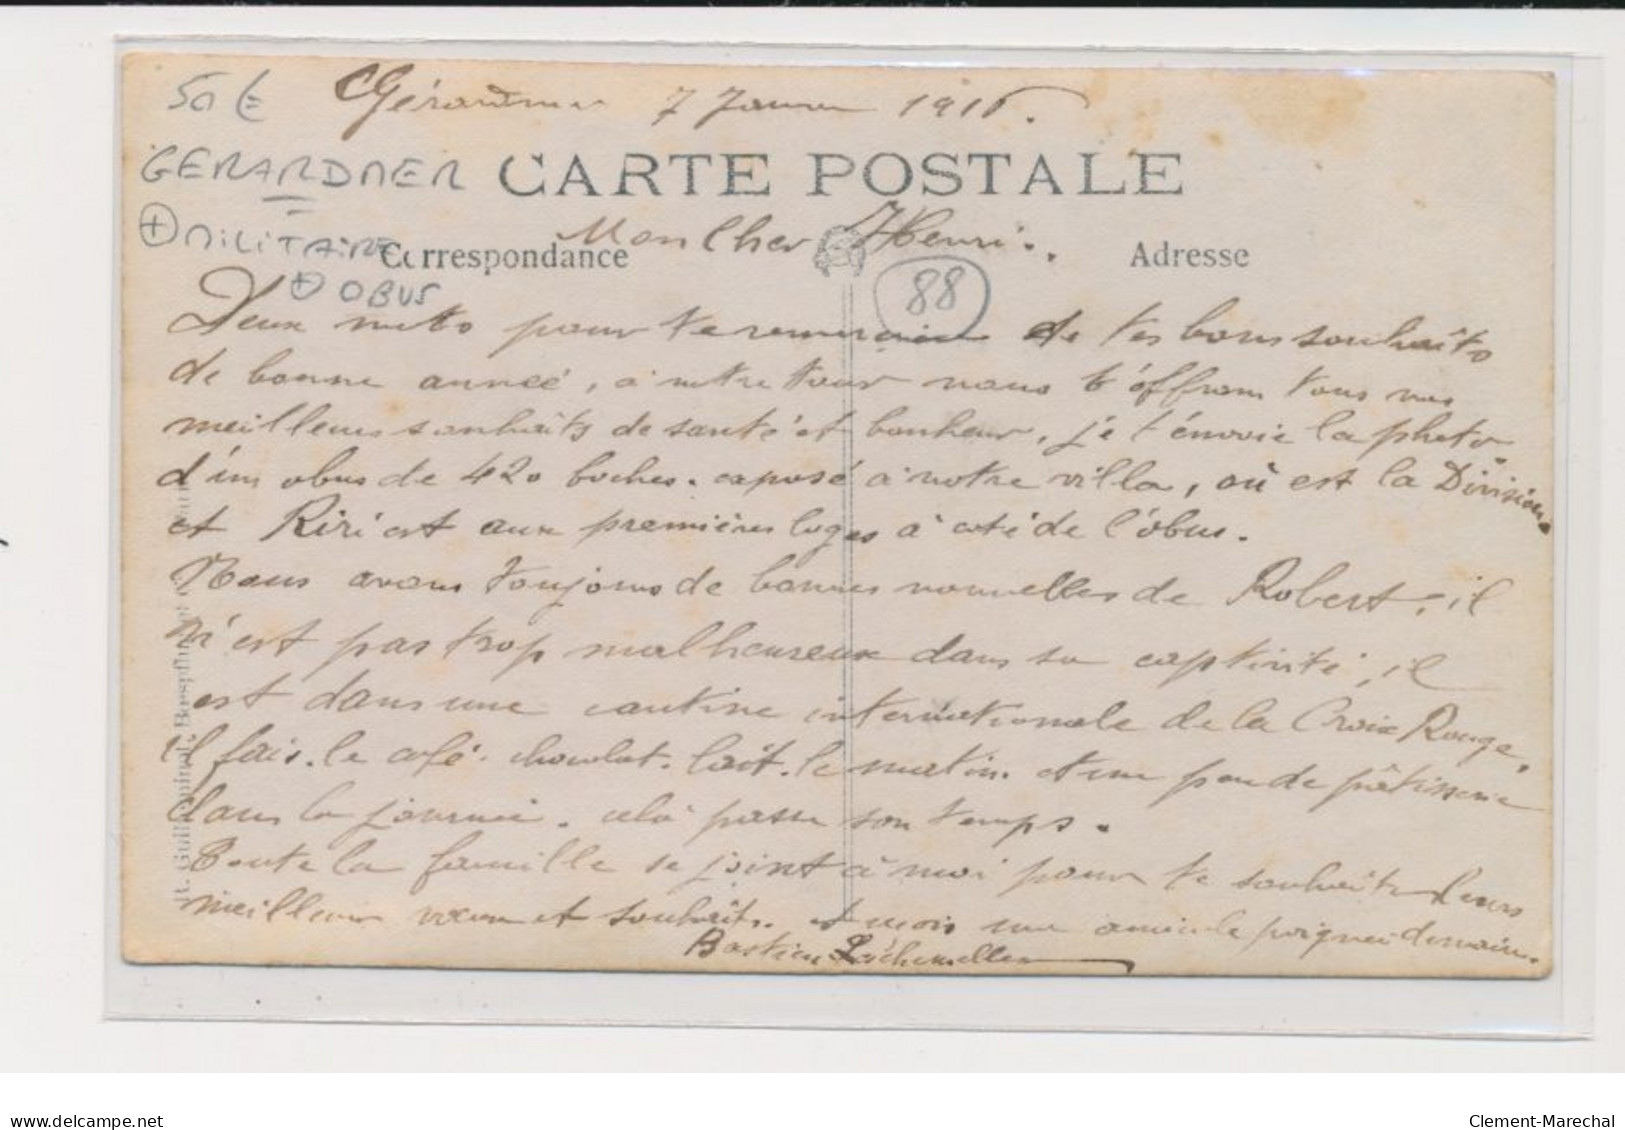 50 €
Gérardmer 7 Janvier 1916.
GERARDMER
CARTE POSTALE
+ MILITAIRE
Mon Cher Henri.
Correspondance
Adresse
+ OBUS
88
Deux mots pour te remercier de tes bons souhaits
de bonne année, à notre tour nous t'offrons tous nos
meilleurs souhaits de santé et bonheur, je t'envoie la photo
d'un obus de 420 boches. exposé à notre villa, où est la Division.
et Riri est aux premières loges à coté de l'obus.
Nous avons toujours de bonnes nouvelles de Robert, il
n'est pas trop malheureux dans sa captivité, il
est dans une cantine internationale de la Croix Rouge,
il fais. le café. chocolat. lait. le matin. et un peu de pâtisserie
dans la journée. celà passe son temps.
Toute la famille se joint à moi pour te souhaiter leurs
meilleurs voeux et souhaits. et mois une amicale poignée de main.
Bastien
delcampe.net
Clement-Marechal